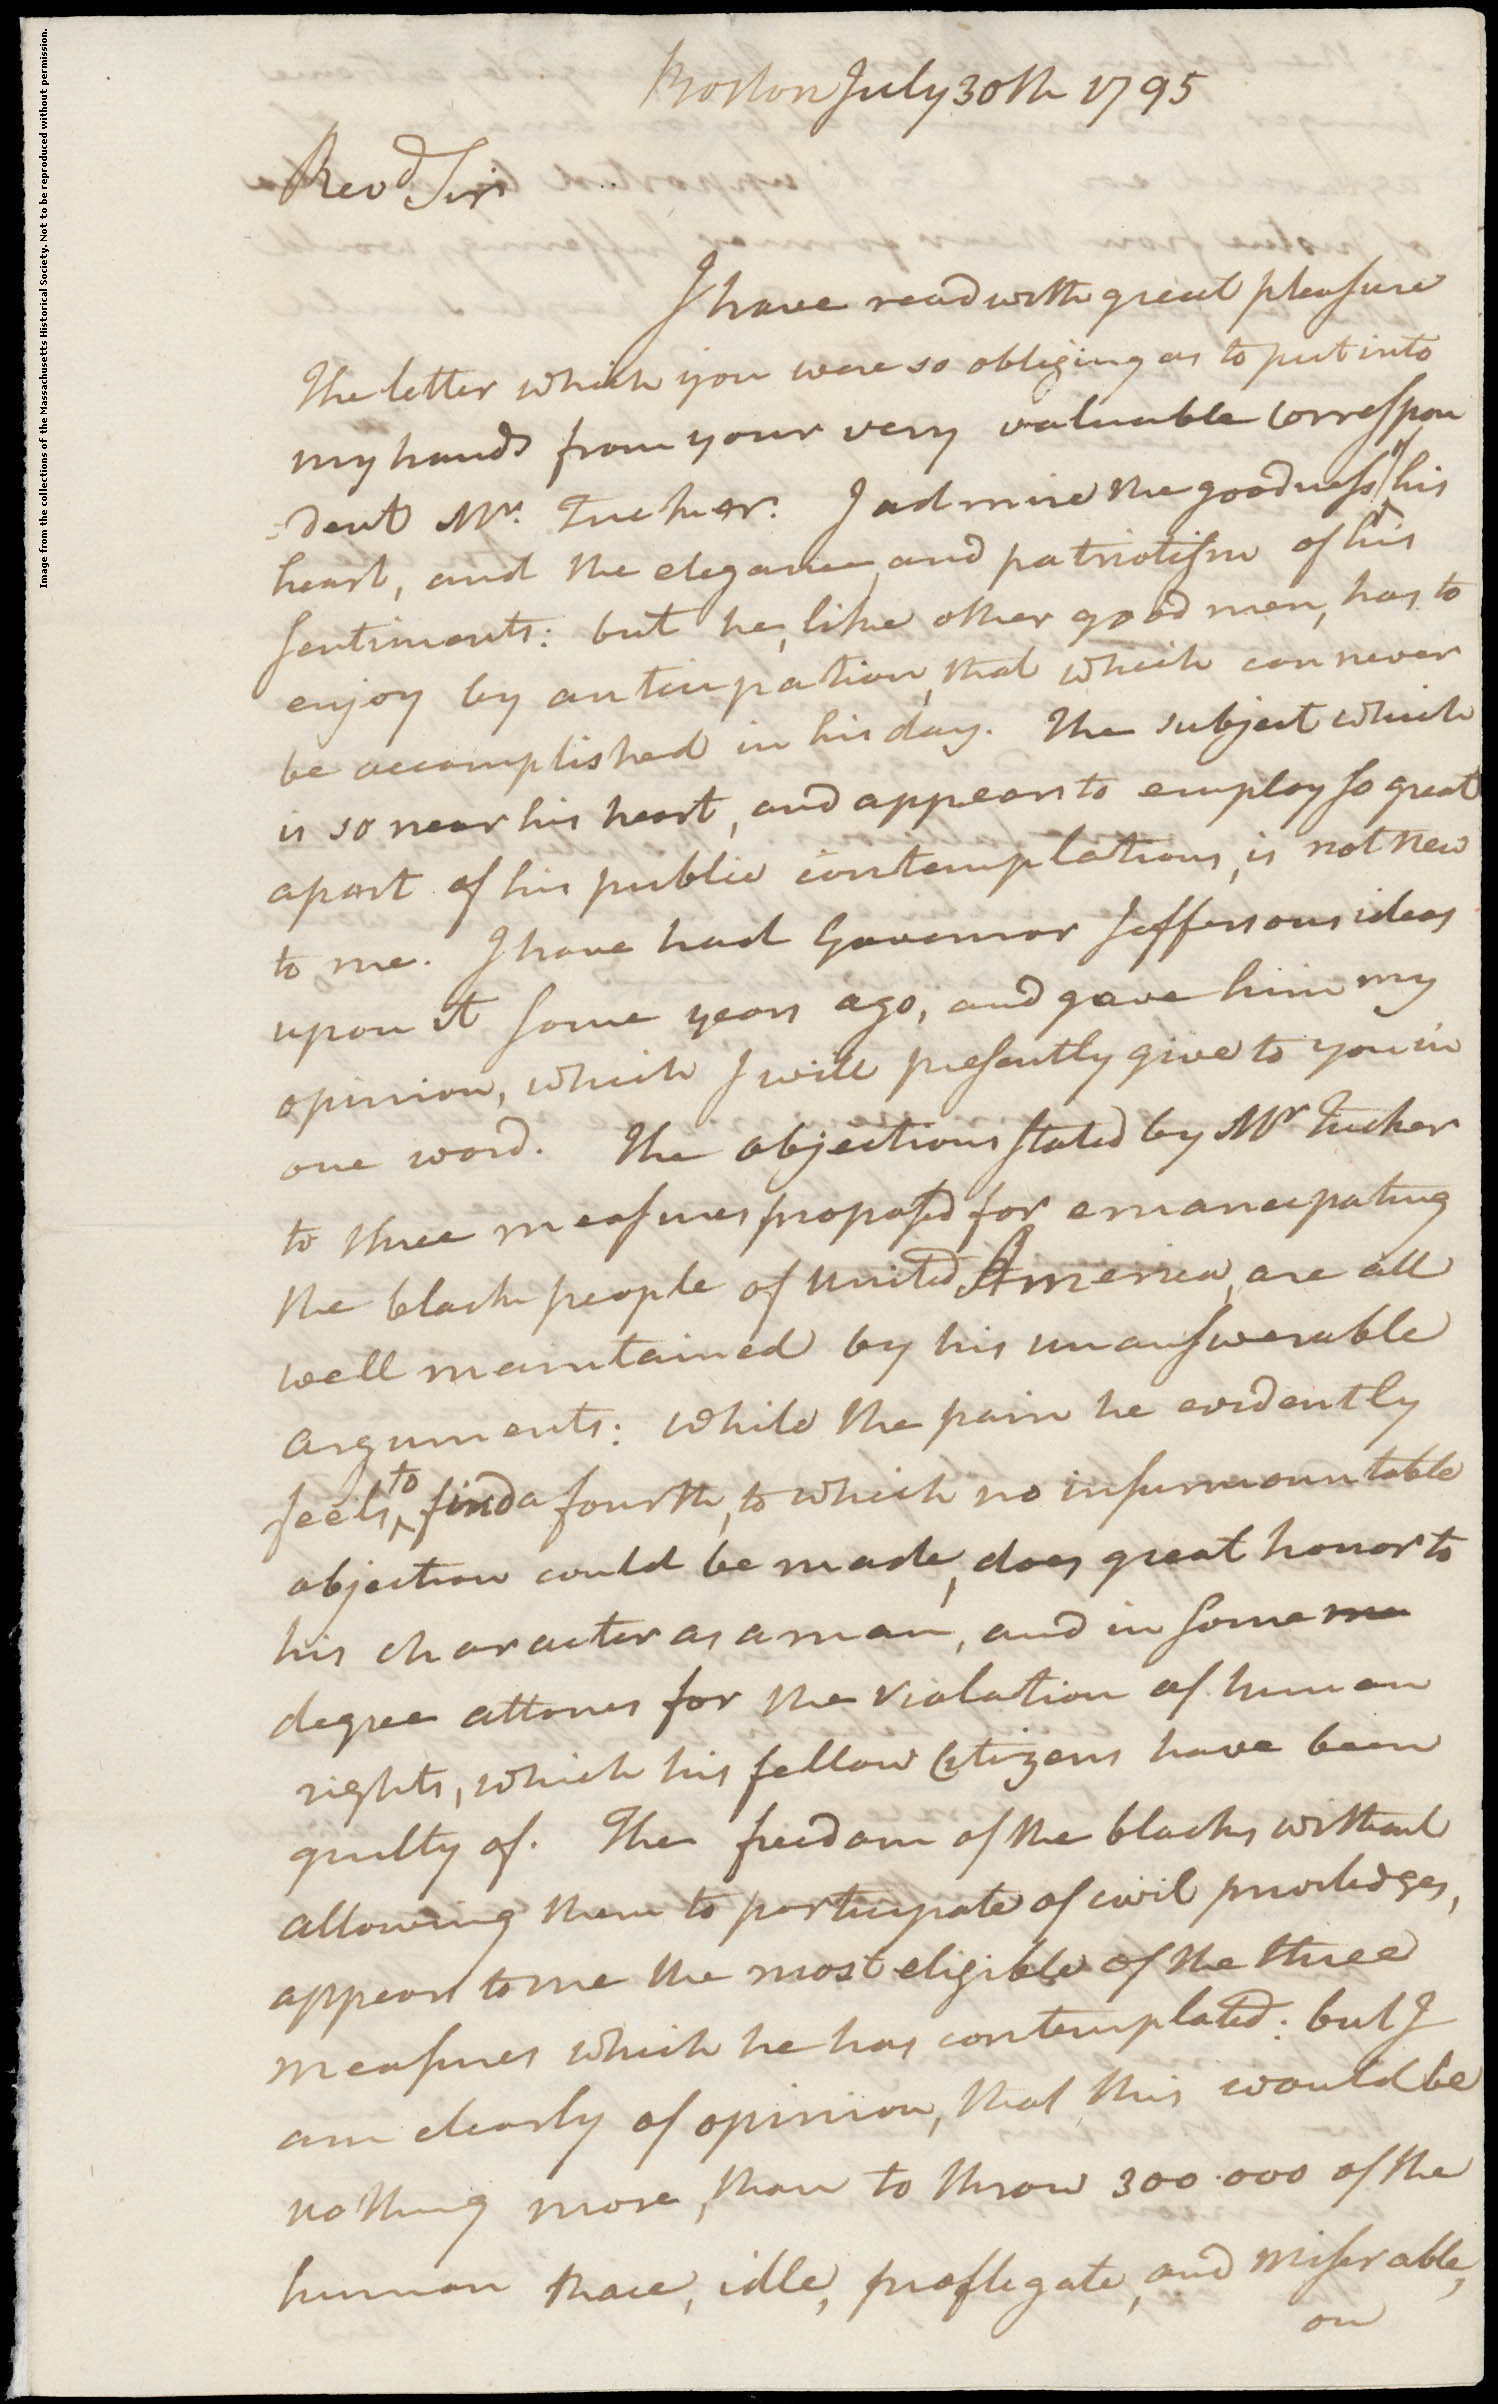 Image from the collections of the Massachusetts Historical Society. Not to be reproduced without permission.
Boston July 30th 1795
Revd Sir
I have read with great pleasure
the letter which you were so obliging as to put into
my hands from your very valuable correspon
dent Mr. Tucker. I admire the goodness of his
heart, and the elegance and patriotism of his
sentiments: but he, like other good men, has to
enjoy by anticipation, that which can never
be accomplished in his day. The subject which
is so near his heart, and appears to employ so great
a part of his public contemplations, is not new
to me. I have had Governor Jeffersons ideas
upon it some years ago, and gave him my
opinion, which I will presently give to you in
one word. The objections stated by Mr Tucker
to three measures proposed for emancipating
the black people of United America, are all
well maintained by his unanswerable
arguments: while the pain he evidently
feels, to find a fourth, to which no insurmountable
objection could be made, does great honor to
his character as a man, and in some me
degree attones for the violation of human
rights, which his fellow Citizens have been
guilty of. The freedom of the blacks without
allowing them to participate of civil priviledges,
appears to me the most eligible of the three
measures which he has contemplated: but I
am clearly of opinion, that this would be
nothing more, than to throw 300.000 of the
human race, idle, profligate, and miserable,
on